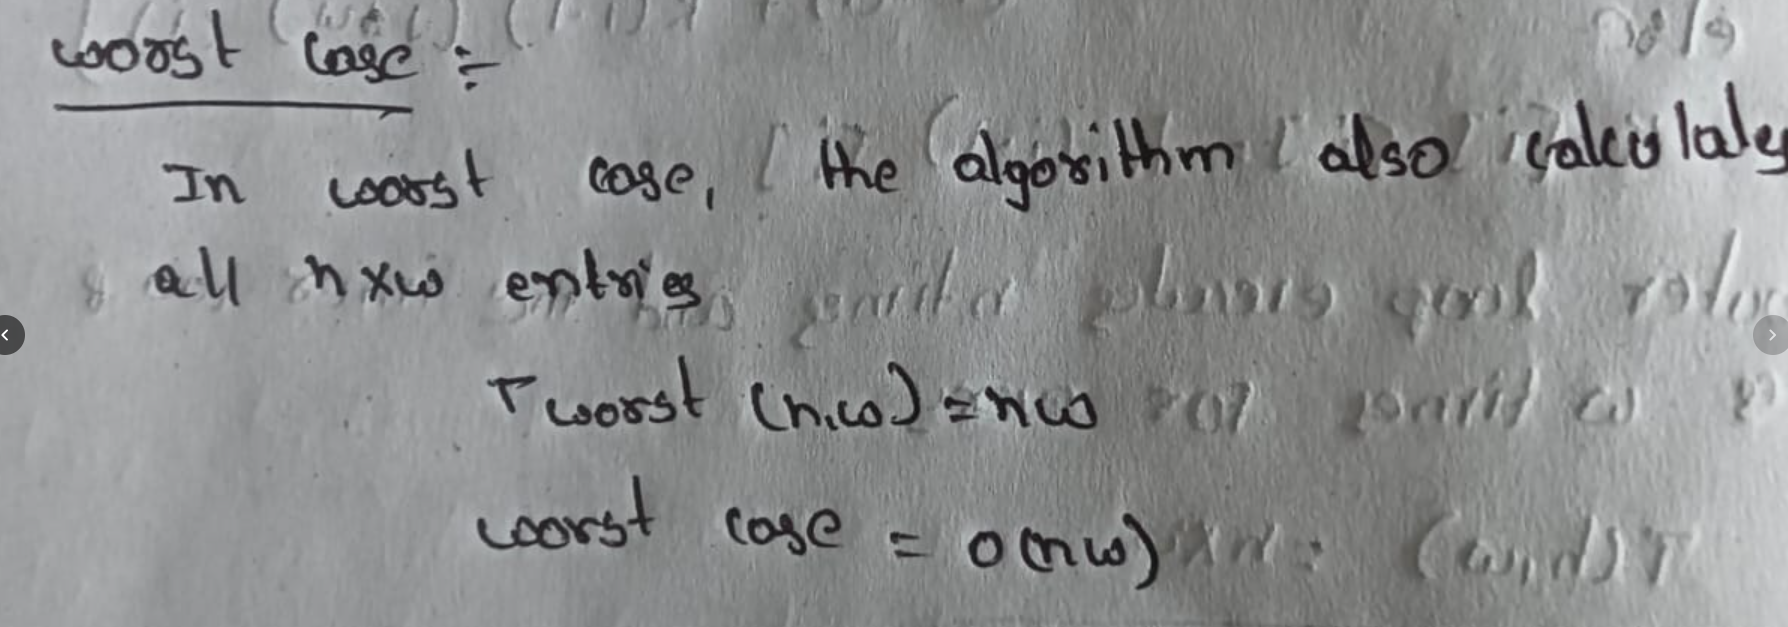 worst case :-
In worst case, the algorithm also calculates
all n x w entries
T worst (n,w) = nw
worst case = O(nw)